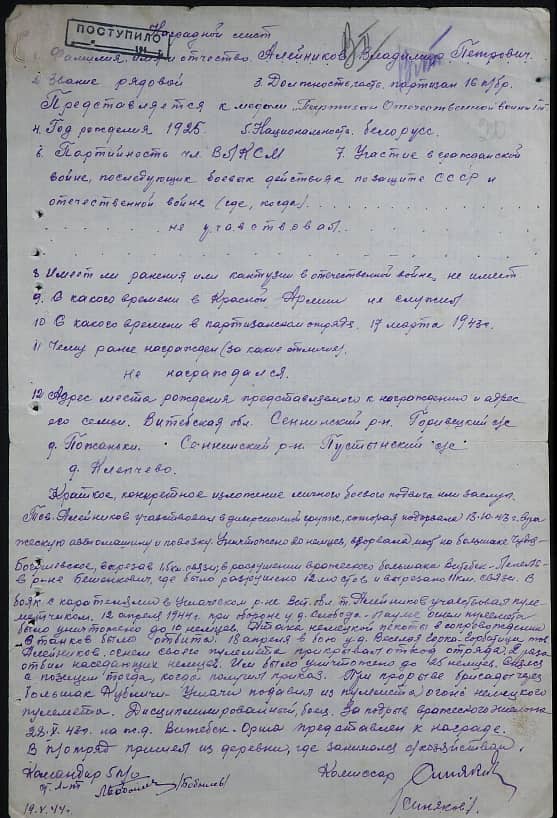 Наградной лист
ПОСТУПИЛО
194
1. Фамилия, имя и отчество Алейников Владимир Петрович.
2. Звание рядовой 3. Должность, часть партизан 16 п/бр.
Представляется к медали "Партизан Отечественной войны
4. Год рождения 1925. 5. Национальность. белорусс.
6. Партийность чл. ВЛКСМ 7. Участие в гражданской
войне, последующих боевых действиях по защите СССР и
отечественной войне (где, когда)
не участвовал.
8. Имеет ли ранения или кантузии в отечественной войне, не имеет
9. С какого времени в Красной Армии не служил
10 С какого времени в партизанском отряде. 17 марта 1943г.
11 Чему ранее награжден (за какие отличия).
не награждался.
12 Адрес места рождения представляемого к награждению и адрес
его семьи. Витебская обл. Сеннинский р-н.
д. Пожаньки. Сеннинский р-н. Пустынский с/с
д. Клепчево.
Краткое, конкретное изложение личного боевого подвига или заслуг.
Тов. Алейников участвовал в диверсионной группе, которая подорвала 13.10.43 г. вра-
жескую автомашину и повозку. Уничтожено до немцев, взорвала мост на большаке
вырезав связи, в разрушении вражеского большака Витебск-Лепель
в р-не Бешенкович, где было разрушено 12 мостов и вырезано 1 км. связи. В
боях с карателями в Ушачском р-не Вит. обл. т. Алейников участвовал пуле-
метчиком. 12 апреля 1944г. при обороне у д. Слобода лично огнем пулемета
было уничтожено до 10 немцев. Атака немецкой пехоты в сопровождении
танков была отбита. 18 апреля в бою у д. Веселая горка тов.
Алейников огнем своего пулемета прикрывал отход отряда, 2 раза
отбил наседающих немцев. Им было уничтожено до 25 немцев.
с позиции тогда, когда получил приказ. При прорыве бригады через
большак Кубличи Ушачи подавил из пулемета огонь немецкого
пулемета. Дисциплинированный боец. За подрыв вражеского эшелона
28.V.43г. на ж.д. Витебск-Орша представлен к награде.
В п/отряд пришел из деревни, где занимался с/хозяйством.
Командир 5 п/о Комиссар Синяков
ст. л-т /Бобыль/
19.V.44г. /Синяков/